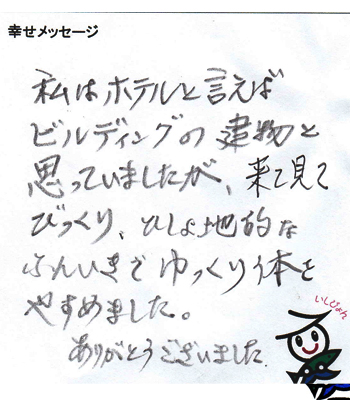 幸せメッセージ
私はホテルと言えば
ビルディングの建物と
思っていましたが、来て見て
びっくり、ひしょ地的な
ふんいきでゆっくり体を
やすめました。
ありがとうございました
いしぴょん